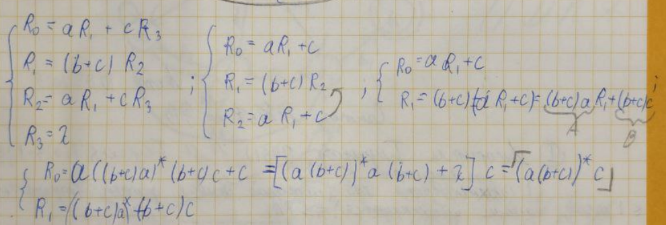 R₀ = aR₁ + cR₃
R₁ = (b+c) R₂
R₂ = aR₁ + cR₃
R₃ = λ
;
R₀ = aR₁ + c
R₁ = (b+c) R₂
R₂ = a R₁ + c
;
R₀ = aR₁ + c
R₁ = (b+c)(aR₁ + c) = (b+c)aR₁ + (b+c)c ;
A B
R₀ = a((b+c)a)*(b+c)c + c = [(a(b+c))* a(b+c) + λ] c = (a(b+c))* c
R₁ = ((b+c)a)*(b+c)c